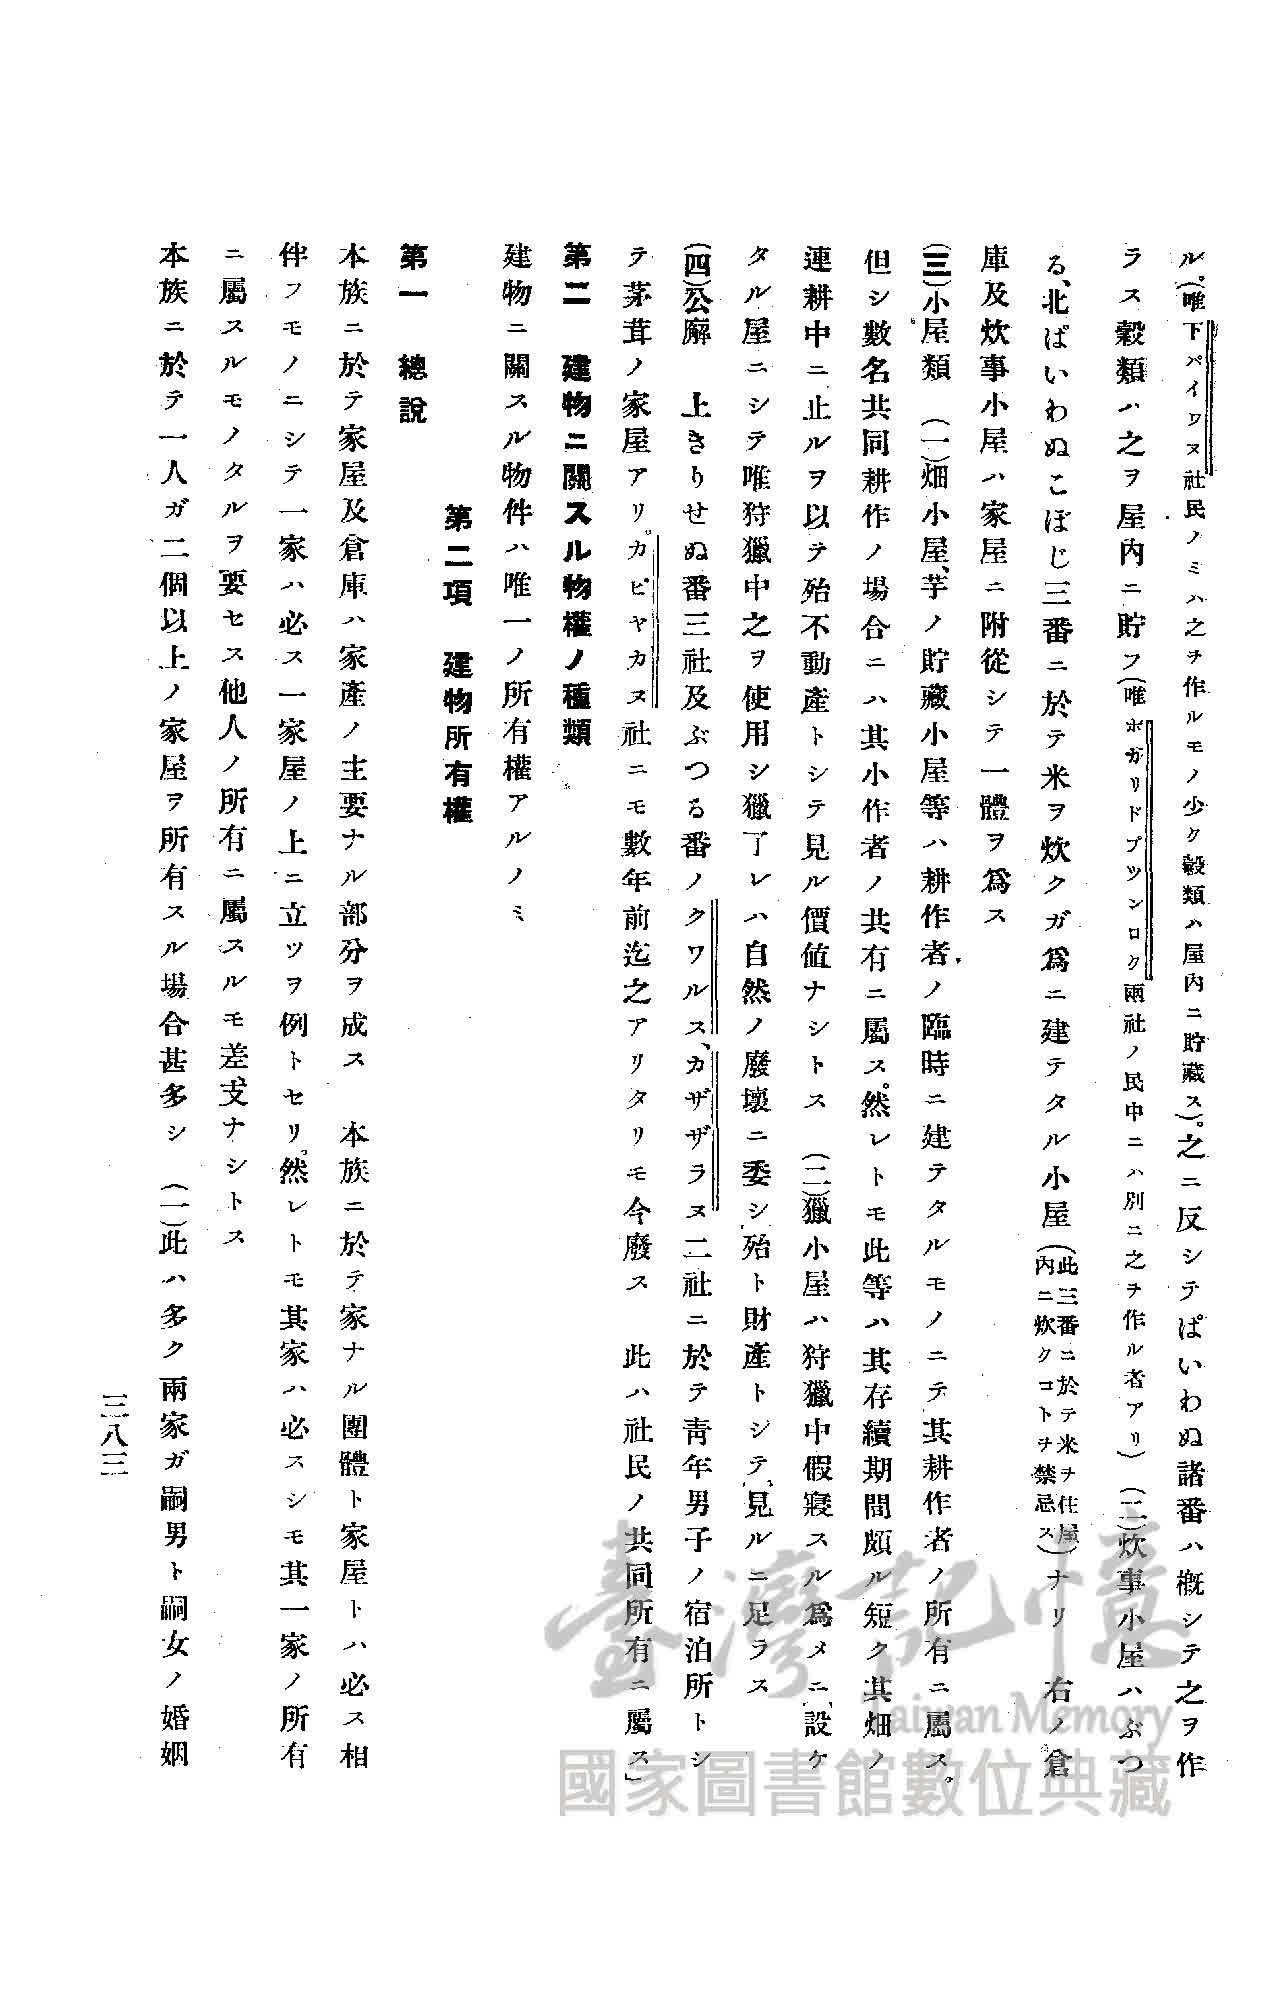 ル。(唯下パイワヌ社民ノミハ之ヲ作ルモノ少ク穀類ハ屋内ニ貯藏ス)。之ニ反シテぱいわぬ諸番ハ概シテ之ヲ作
ラス穀類ハ之ヲ屋内ニ貯フ(唯ボガリドプツンロク兩社ノ民中ニハ別ニ之ヲ作ル者アリ) (二)炊事小屋ハぶつ
る、北ぱいわぬこぼじ三番ニ於テ米ヲ炊クガ爲ニ建テタル小屋(此三番ニ於テ米ヲ住屋内ニ炊クコトヲ禁忌ス)ナリ 右ノ倉
庫及炊事小屋ハ家屋ニ附從シテ一體ヲ爲ス
(三)小屋類 (一)畑小屋、芋ノ貯藏小屋等ハ耕作者ノ臨時ニ建テタルモノニテ其耕作者ノ所有ニ屬ス。
但シ數名共同耕作ノ場合ニハ其小作者ノ共有ニ屬ス。然レトモ此等ハ其存續期間頗ル短ク其畑ノ
連耕中ニ止ルヲ以テ殆不動產トシテ見ル價値ナシトス (二)獵小屋ハ狩獵中假寢スル爲メニ設ケ
タル屋ニシテ唯狩獵中之ヲ使用シ獵了レハ自然ノ廢壞ニ委シ殆ト財產トシテ見ルニ足ラス
(四)公廨 上きりせぬ番三社及ぶつる番ノクワルス、カザザラヌ二社ニ於テ靑年男子ノ宿泊所トシ
テ茅茸ノ家屋アリ。カピヤカヌ社ニモ數年前迄之アリタリモ今廢ス 此ハ社民ノ共同所有ニ屬ス」
第二 建物ニ關スル物權ノ種類
建物ニ關スル物件ハ唯一ノ所有權アルノミ
第二項 建物所有權
第一 總說
本族ニ於テ家屋及倉庫ハ家產ノ主要ナル部分ヲ成ス 本族ニ於テ家ナル團體ト家屋トハ必ス相
伴フモノニシテ一家ハ必ス一家屋ノ上ニ立ツヲ例トセリ。然レトモ其家ハ必スシモ其一家ノ所有
ニ屬スルモノタルヲ要セス他人ノ所有ニ屬スルモ差支ナシトス
本族ニ於テ一人ガ二個以上ノ家屋ヲ所有スル場合甚多シ (一)此ハ多ク兩家ガ嗣男ト嗣女ノ婚姻
三八三
臺灣記憶
Taiwan Memory
國家圖書館數位典藏